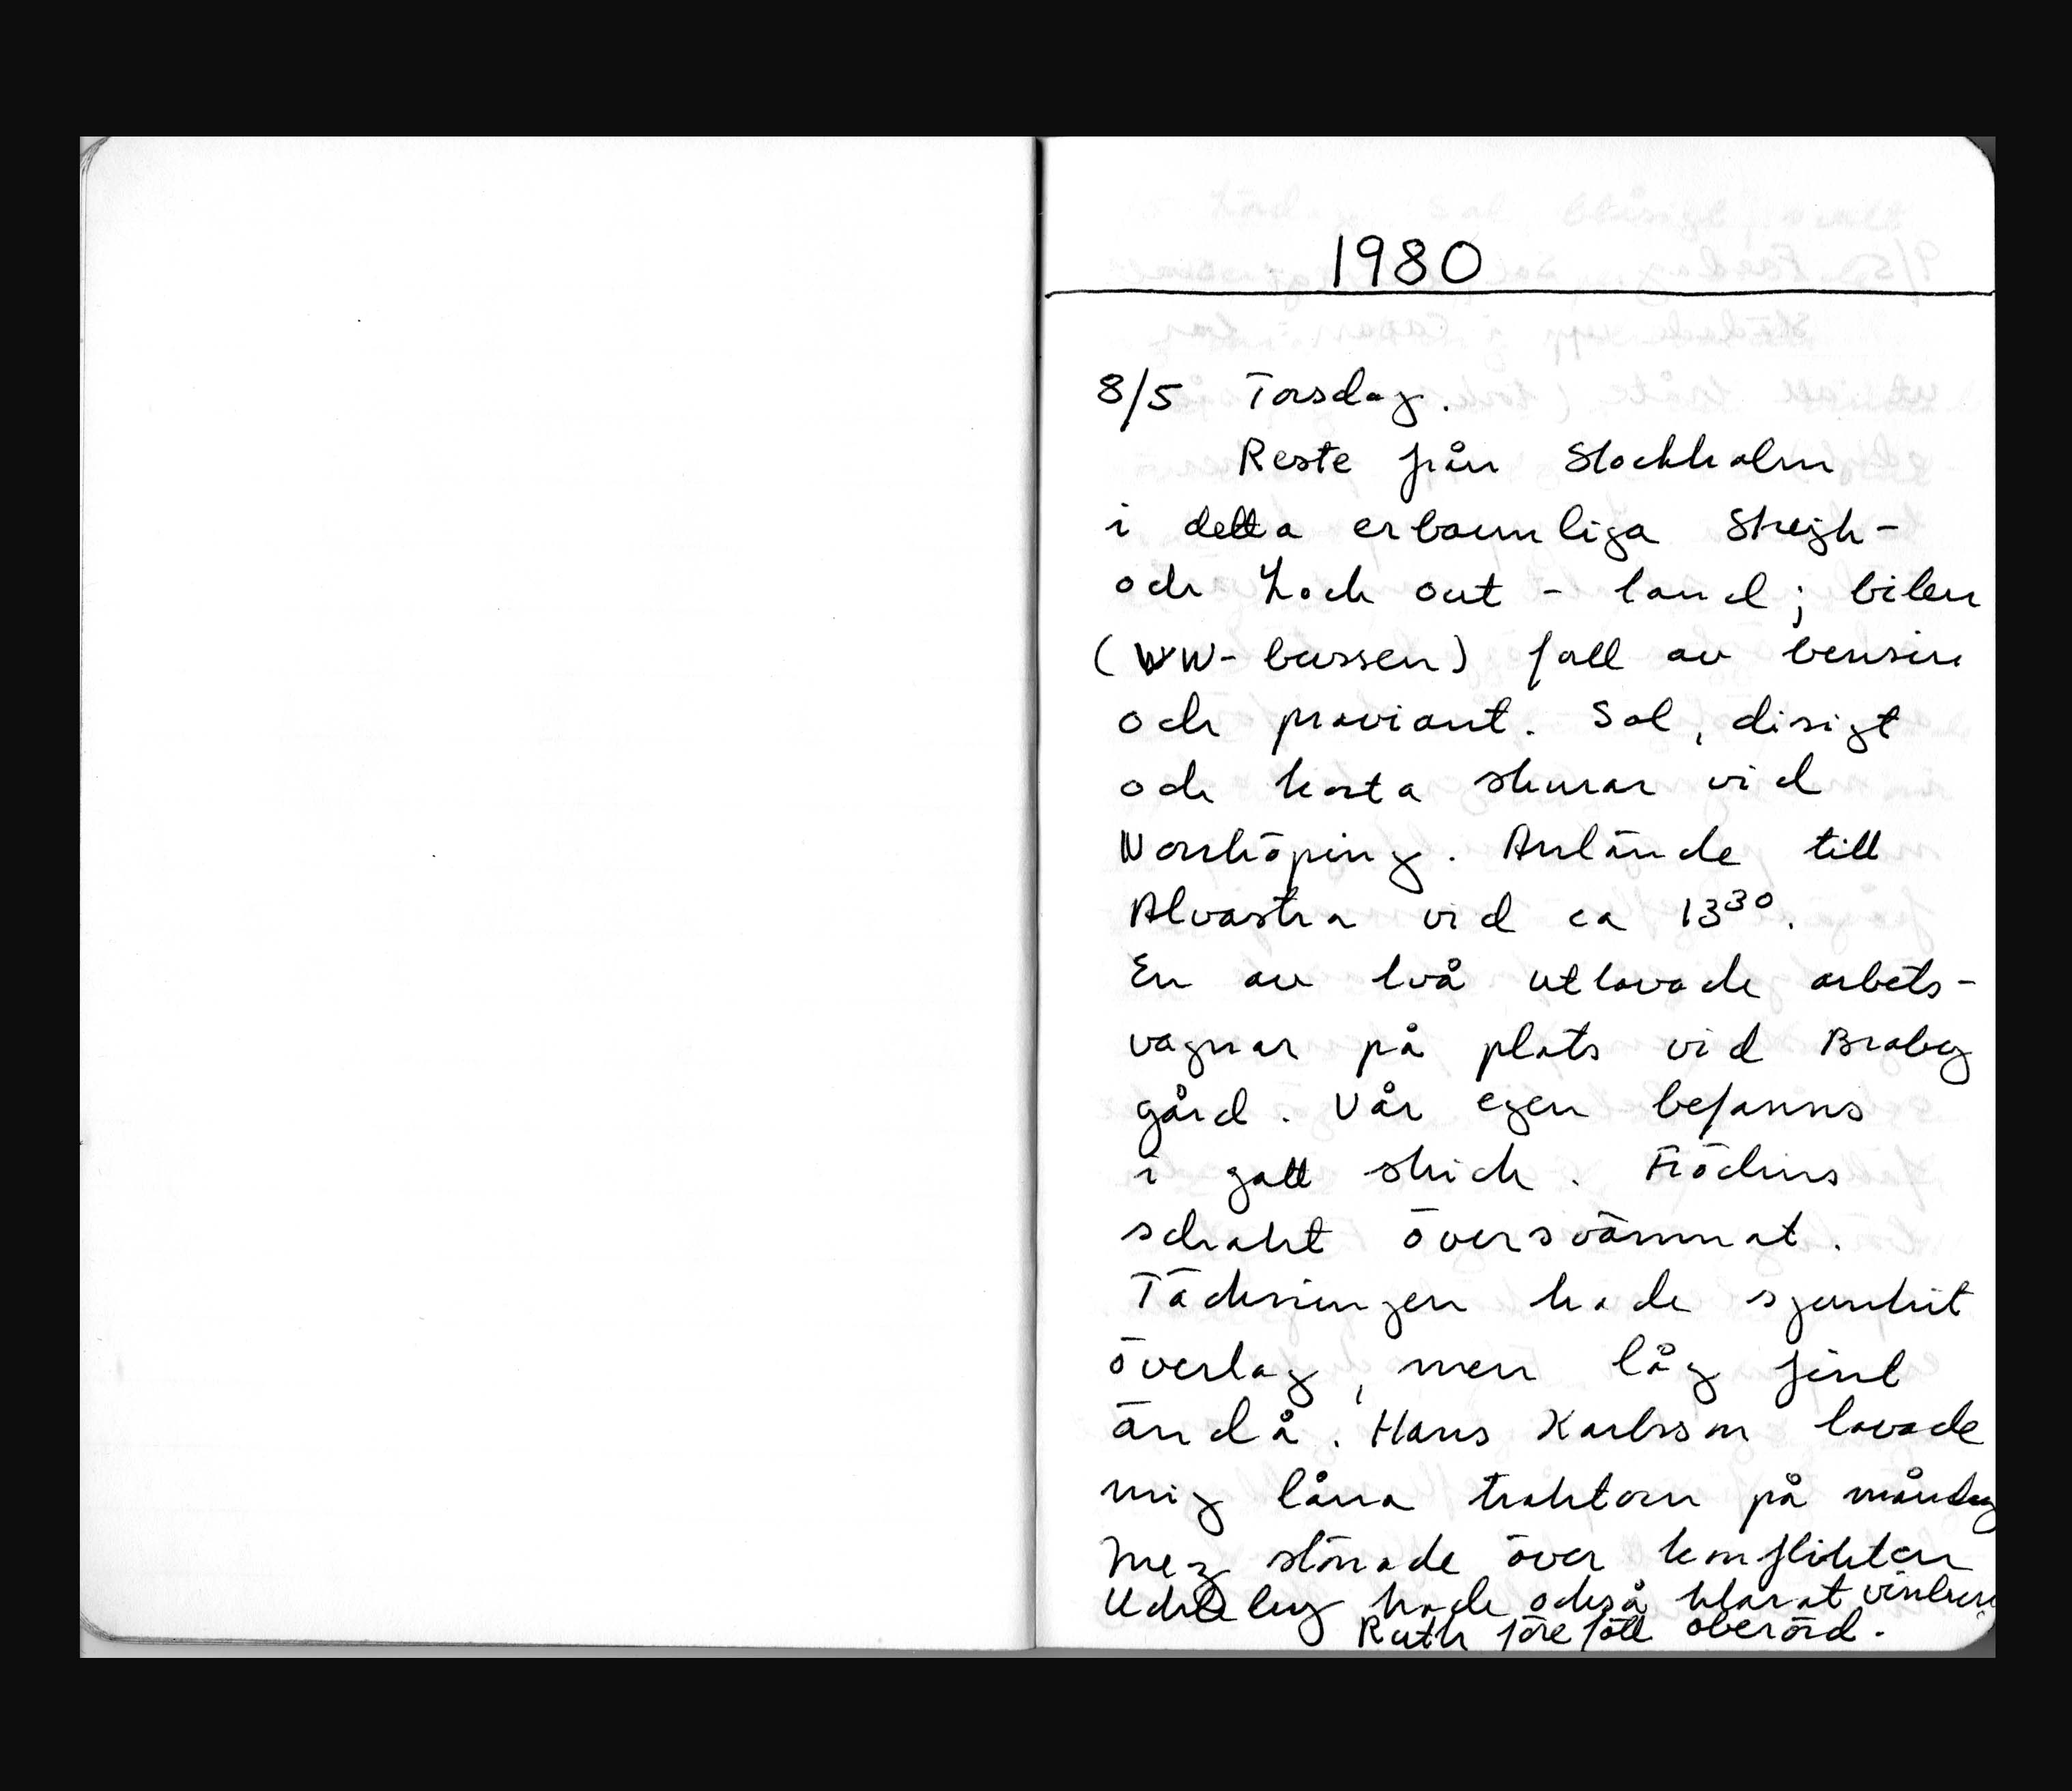 1980
8/5 Torsdag.
Reste från Stockholm
i detta erbarmliga Strejk-
och Lock out - land; bilen
(WW-bussen) full av bensin
och proviant. Sol, disigt
och korta skurar vid
Norrköping. Anlände till
Alvastra vid ca 13³⁰.
En av två utlovade arbets-
vagnar på plats vid Broby
gård. Vår egen befanns
i gott skick. Frödins
schakt översvämmat.
Täckningen hade sjunkit
överlag, men låg fint
ändå. Hans Karlsson lovade
mig låna traktorn på måndag
Meg stönade över konflikten
hade också klarat vintern
Ruth föreföll oberörd.